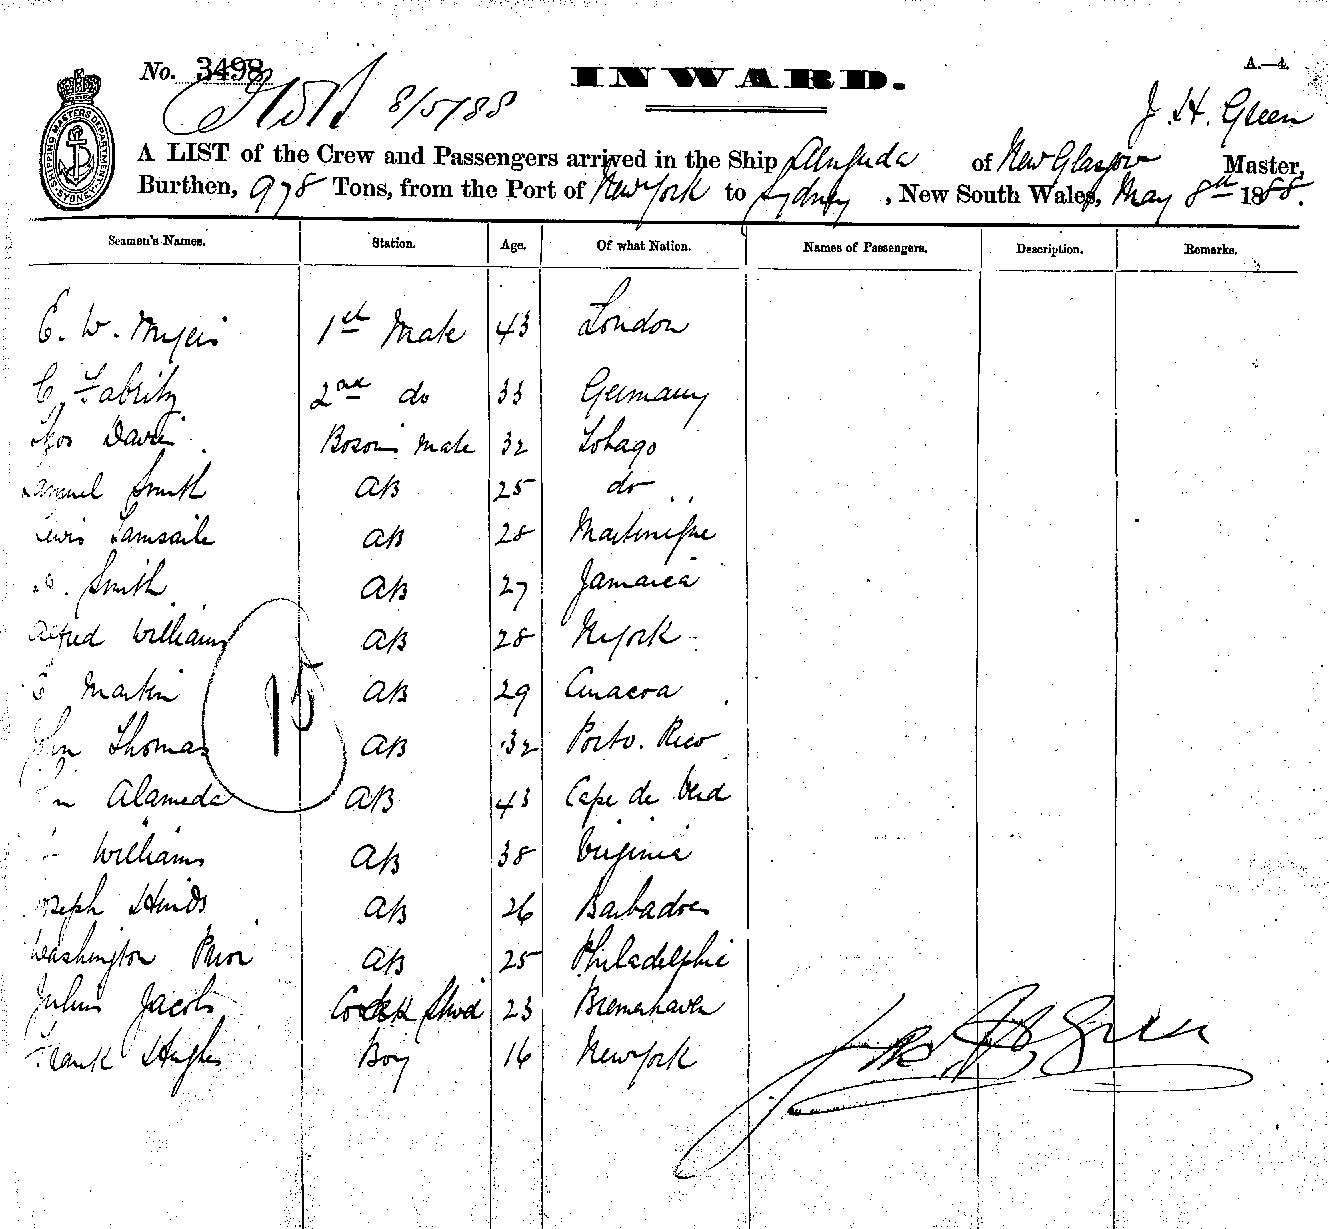 No. 3498
INWARD.
A.—4.
8/5/88
J. H. Green
SHIPPING MASTERS DEPARTMENT SYDNEY
A LIST of the Crew and Passengers arrived in the Ship of New Glasgow Master,
Burthen, 978 Tons, from the Port of New York to Sydney, New South Wales, May 8th 1888.
Seamen's Names. Station. Age. Of what Nation. Names of Passengers. Description. Remarks.
E. W. Myers 1st Mate 43 London
C. Fabritz 2nd do 33 Germany
Thos Davis Bosons Mate 32 Tobago
Samuel Smith AB 25 do
Lewis AB 28 Martinique
Smith AB 27 Jamaica
Alfred Williams AB 28 N York
E Martin AB 29 Curacoa
15
John Thomas AB 32 Porto Rico
Alameda AB 43 Cape de Verd
Williams AB 38 Virginia
Joseph Hinds AB 26 Barbadoes
Washington AB 25 Philadelphia
Julius Jacobs Cook & Stwd 23 Bremahaven
Frank Hughes Boy 16 New York
Jas. H. Green